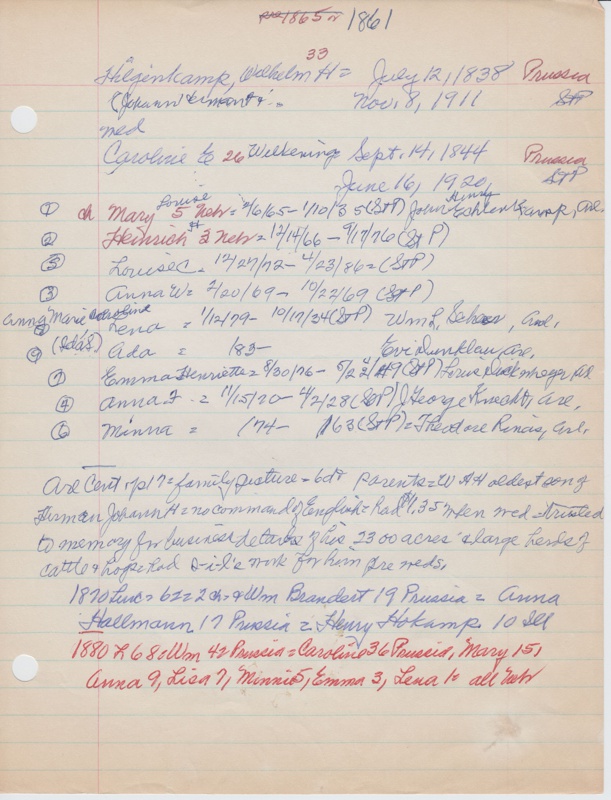 pre 1865 or 1861
33
Hilgenkamp, Wilhelm H = July 12, 1838 Prussia
(Johann = Nov. 8, 1911 StP
med
Caroline E 26 Wilkening Sept. 14, 1844 Prussia
June 16, 1920, StP
① ch Mary Louise 5 Nebr = 2/6/65 - 1/10/35 (StP) John Henry Kamp, Are.
② Heinrich H 3 Nebr = 12/14/66 - 9/17/76 (StP)
⑤ Louise C = 12/27/72 - 4/23/86 = (StP)
③ Anna W = 2/20/69 - 10/22/69 (StP)
Anna Marie Carolina
⑧ Lena = 1/12/79 - 10/17/34 (StP) Wm L. Scheer, Are.
⑨ (Ida S) Ada = 183- Ev. Dunklau, Are.
⑦ Emma Henriette = 8/30/76 - 5/22/49 (StP) Louis
④ Anna F. = 11/15/70 - 4/2/28 (StP) J George Knecht, Are.
⑥ Minna = 174- 163 (StP) = Theodore Rincs, Are.
Are Cent p17 = family picture = 6 dt parents = W H H oldest son of
Herman Johann H = no command of English = had $1.35 when med = trusted
to memory for business details of his 2300 acres & large herds of
cattle & hogs = had s-i-l's work for him pre meds.
1870 = 62 = 2 ch = & Wm Brandert 19 Prussia = Anna
Hallmann 17 Prussia = Henry Hokamp 10 Ill
1880 L 68 = Wm 42 Prussia = Caroline 36 Prussia, Mary 15,
Anna 9, Lisa 7, Minnie 5, Emma 3, Lena 1 = all Nebr